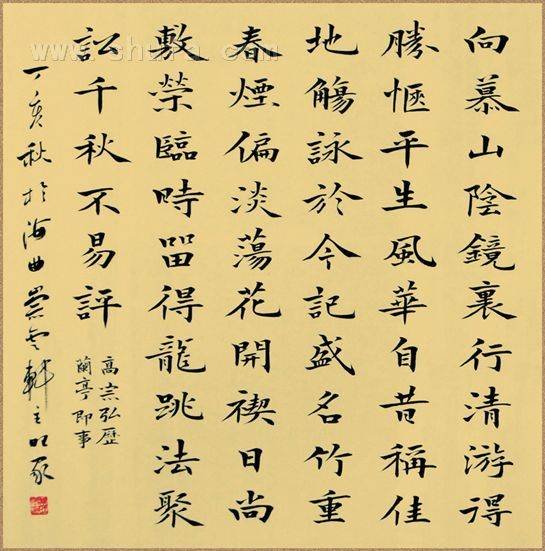 向慕山陰鏡裏行清游得
勝愜平生風華自昔稱佳
地觴詠於今記盛名竹重
春煙偏淡蕩花開禊日尚
敷榮臨時留得龍跳法聚
訟千秋不易評
高宗弘歷
蘭亭即事
丁亥秋於海曲崇雲軒主